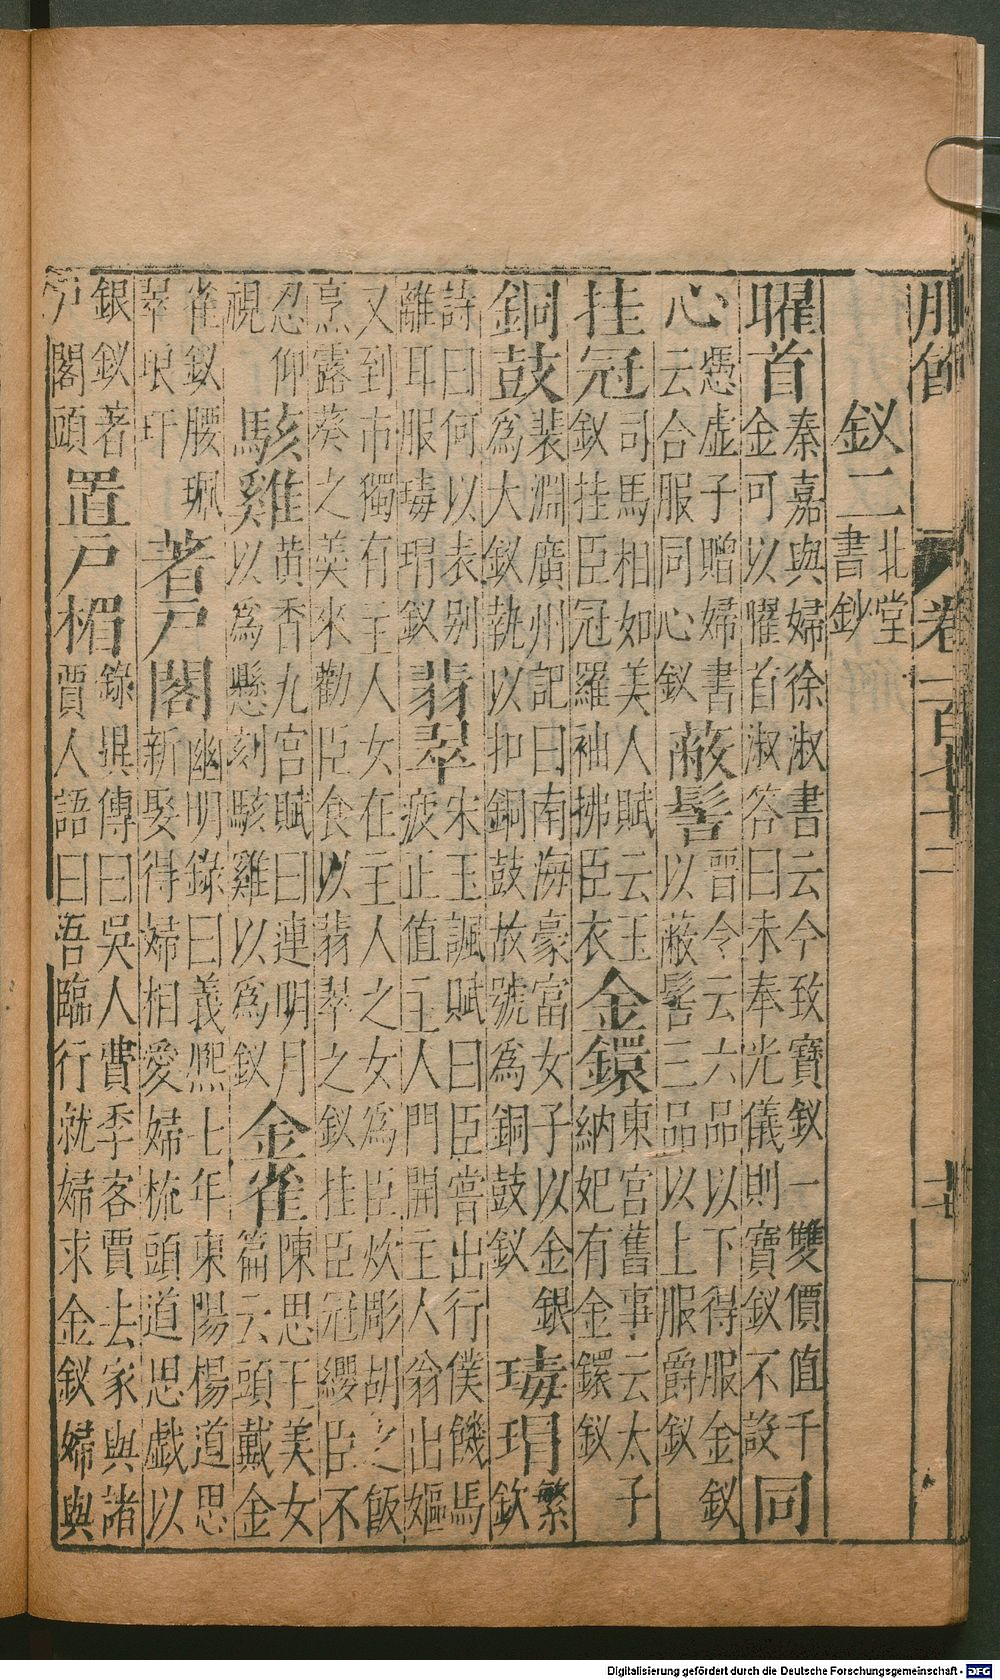 卷一百七十二
釵二
北堂
書鈔
曜首
秦嘉與婦徐淑書云今致寶釵一雙價值千
金可以曜首淑答曰未奉光儀則寶釵不設
同
心
憑虛子贈婦書
云合服同心釵
蔽髻
晉令云六品以下得服金釵
以蔽髻三品以上服爵釵
挂冠
司馬相如美人賦云玉
釵挂臣冠羅袖拂臣衣
金鐶
東宮舊事云太子
納妃有金鐶釵
銅鼓
裴淵廣州記曰南海豪富女子以金銀
爲大釵執以扣銅鼓故號爲銅鼓釵
瑇瑁
繁
欽
詩曰何以表别
離耳服瑇瑁釵
翡翠
宋玉諷賦曰臣嘗出行僕饑馬
疲正值主人門開主人翁出嫗
又到市獨有主人女在主人之女爲臣炊彫胡之飯
烹露葵之羮來勸臣食以翡翠之釵挂臣冠纓臣不
忍仰
視
駭雞
黃香九宮賦曰連明月
以爲懸刻駭雞以爲釵
金雀
陳思王美女
篇云頭戴金
雀釵腰珮
翠琅玕
著戸閣
幽明錄曰義熙七年東陽楊道思
新娶得婦相愛婦梳頭道思戲以
銀釵著
戸閣頭
置戸楣
錄異傳曰吳人費季客賈去家與諸
賈人語曰吾臨行就婦求金釵婦與
Digitalisierung gefördert durch die Deutsche Forschungsgemeinschaft - DFG